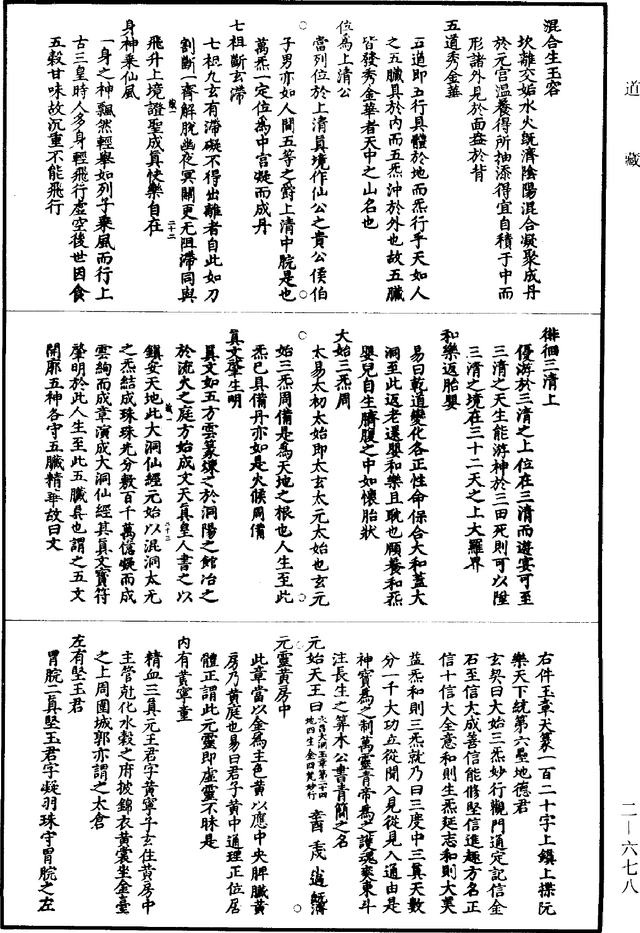 道藏
混合生玉容
坎離交姤水火旣濟陰陽混合凝聚成丹
於元宫溫養得所抽添得宜自積于中而
形諸外見於面盎於背
五道秀金華
五道即五行具體於地而炁行乎天如人
之五臟具於內而五炁沖於外也故五臟
皆發秀金華者天中之山名也
位爲上清公
當列位於上清眞境作仙公之貴公侯伯
子男亦如人間五等之爵上清中脘是也
萬炁一定位爲中宫凝而成丹
七祖斷玄滯
七祖九玄有滯礙不得出離者自此如刀
割斷一齊解脫幽夜冥關更无阻滯同與
飛升上境證聖成眞快樂自在
身神乘仙風
一身之神飄然輕舉如列子乘風而行上
古三皇時人多身輕飛行虛空後世因食
五穀甘味故沉重不能飛行
徘徊三清上
優游於三清之上位在三清而遊宴可至
三清之天生能游神於三田死則可以陞
三清之境在三十二天之上大羅界
和樂返胎嬰
易曰乾道變化各正性命保合大和蓋大
洞至此返老還嬰和樂且耽也願養和炁
嬰兒自生臍腹之中如懷胎狀
大始三炁周
太易太初太始即太玄太元太始也玄元
始三炁周備是爲天地之根也人生至此
炁已具備丹亦如是火候周備
眞文肇生明
眞文如五方雲篆煉之於洞陽之館冶之
於流火之庭方始成文天眞皇人書之以
鎮安天地此大洞仙經元始以混洞太无
之炁結成珠珠光分敷百千萬億凝而成
雲絢而成章演成大洞仙經其眞文寶符
肇明於此人生至此五臟具也謂之五文
開廓五神各守五臟精華故曰文
右件玉章天篆一百二十字上鎮上搽阮
樂天下統第六壘地德君
玄契曰大始三炁妙行觀門通定記信金
石至信大成善信能修堅信進趣方名正
信十信大全意和則生炁延志和則大美
益炁和則三炁就乃曰三度中三眞天數
分一千大功立從聞入見從見入通由是
神寶爲之制萬靈青帝爲之護魂奕東斗
注長生之筭木公書青簡之名
元始天王曰
元靈黄房中
此章當以金爲主色黄以應中央脾臟黄
房乃黄庭也易曰君子黄中通理正位居
體正謂此元靈即虛靈不昧是
內有黄寧童
精血三眞元王君字黄寧子玄住黄房中
主管尅化水穀之府披錦衣黄裳坐金臺
之上周圍城郭亦謂之太倉
左有堅玉君
胃脘二眞堅玉君字凝羽珠守胃脘之左
二—六七八